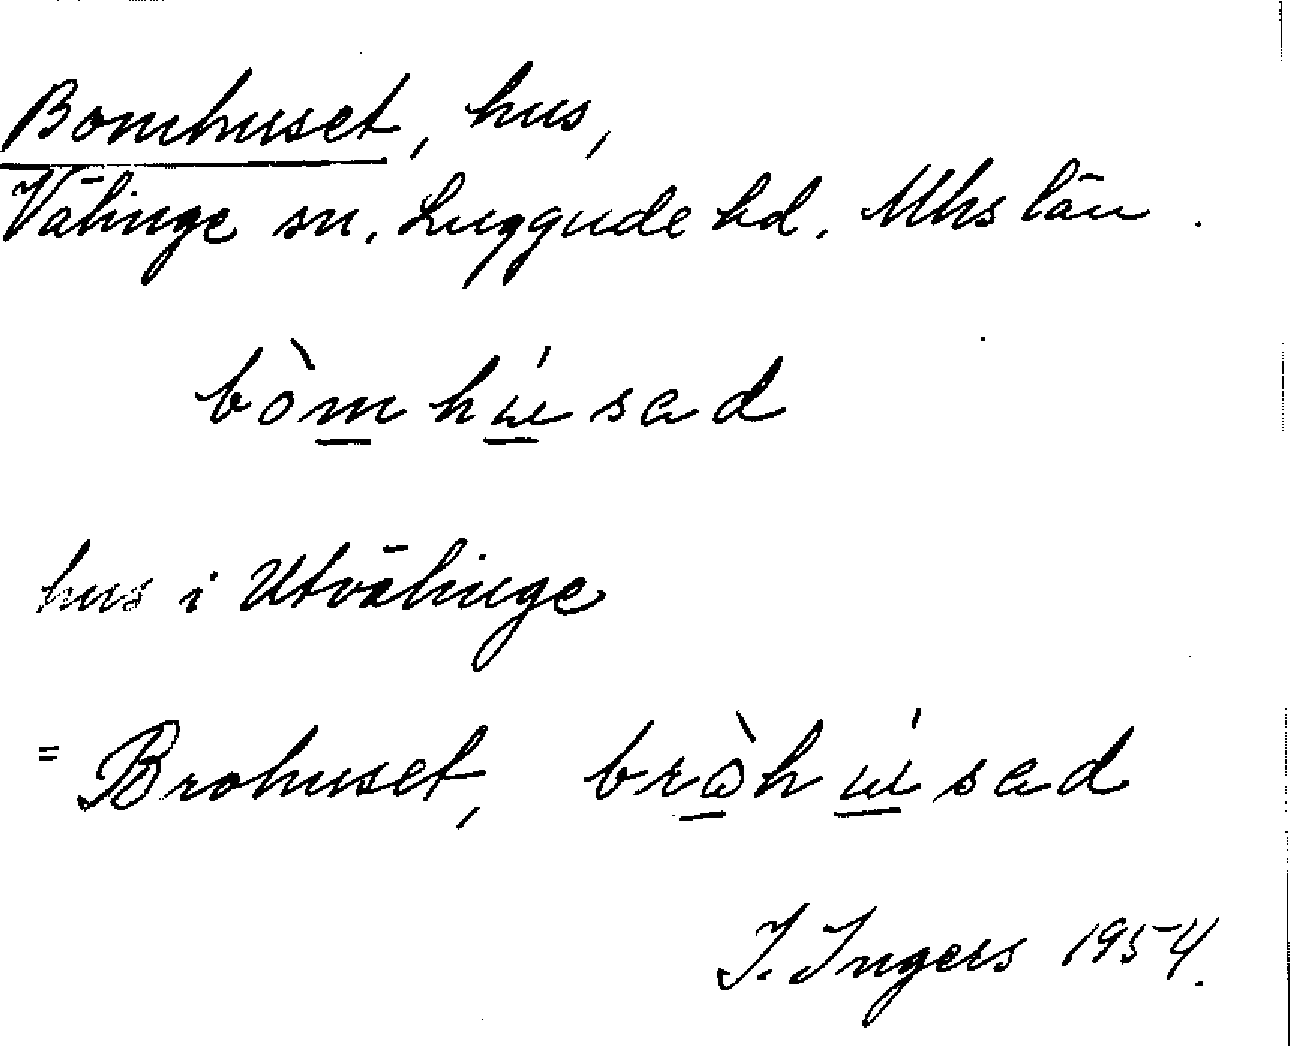 Bomhuset, hus,
Välinge sn. Luggude hd. Mhs län.
bòmhúsad
hus i Utvälinge
= Brohuset, bròhúsad
I. Ingers 1954.